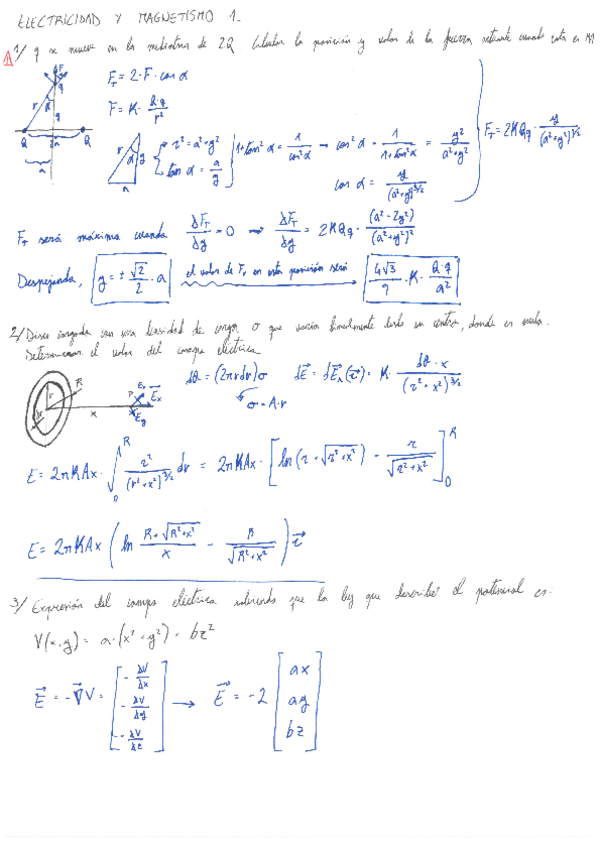 ELECTRICIDAD Y MAGNETISMO 1.
1/ q se mueve en la mediatriz de 2Q. Calcular la posición y valor de la fuerza cuando esta es
F_T = 2·F·cos α
F = K·Q·q/r²
r² = a² + y²
tan α = a/y
1+tan² α = 1/cos² α → cos² α = 1/(1+tan² α) = y²/(a²+y²)
cos α = y/(a²+y²)^(3/2)
F_T = 2KQq · y/(a²+y²)^(3/2)
F_T será máxima cuando ΔF_T/Δy = 0 → ΔF_T/Δy = 2KQq · (a²-2y²)/(a²+y²)²
Despejando, y = ± √2/2 · a el valor de F_T en esta posición será 4√3/9 · K · Q·q/a²
2/ Disco cargado con una densidad de carga σ que varía linealmente desde su centro, donde es nula.
Determinar el valor del campo eléctrico
dQ = (2πrdr)σ dE = dE_x (i) = K · dQ·x/(r²+x²)^(3/2)
σ = A·r
E = 2πKAx · ∫₀^R r²/(r²+x²)^(3/2) dr = 2πKAx · [ln(r+√(r²+x²)) - r/√(r²+x²)]₀^R
E = 2πKAx (ln (R+√(R²+x²))/x - R/√(R²+x²)) i
3/ Expresión del campo eléctrico sabiendo que la ley que describe el potencial es:
V(x,y) = a·(x²+y²) + bz²
E = -∇V = [-ΔV/Δx -ΔV/Δy -ΔV/Δz] → E = -2 [ax ay bz]